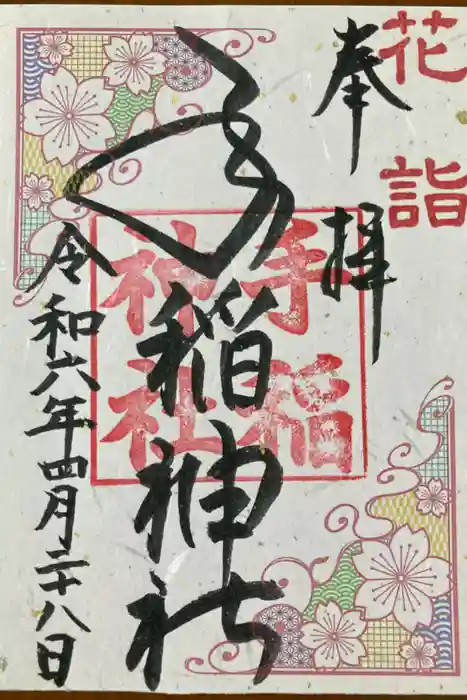 花詣
奉拝
手稲神社
手稲
神社
令和六年四月二十八日